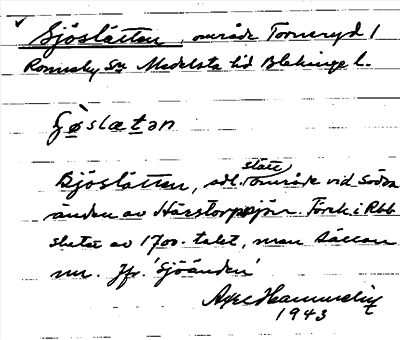 Sjöslätten, område Torneryd 1
Ronneby Sn Medelsta hd Blekinge l.
Sjöslätten, odl. område vid Södra
slåtter
änden av Härstorpssjön. Förek. i Rbb
slutet av 1700-talet, men sällan
nu. Jfr. 'Sjöänden'
Axel
1943